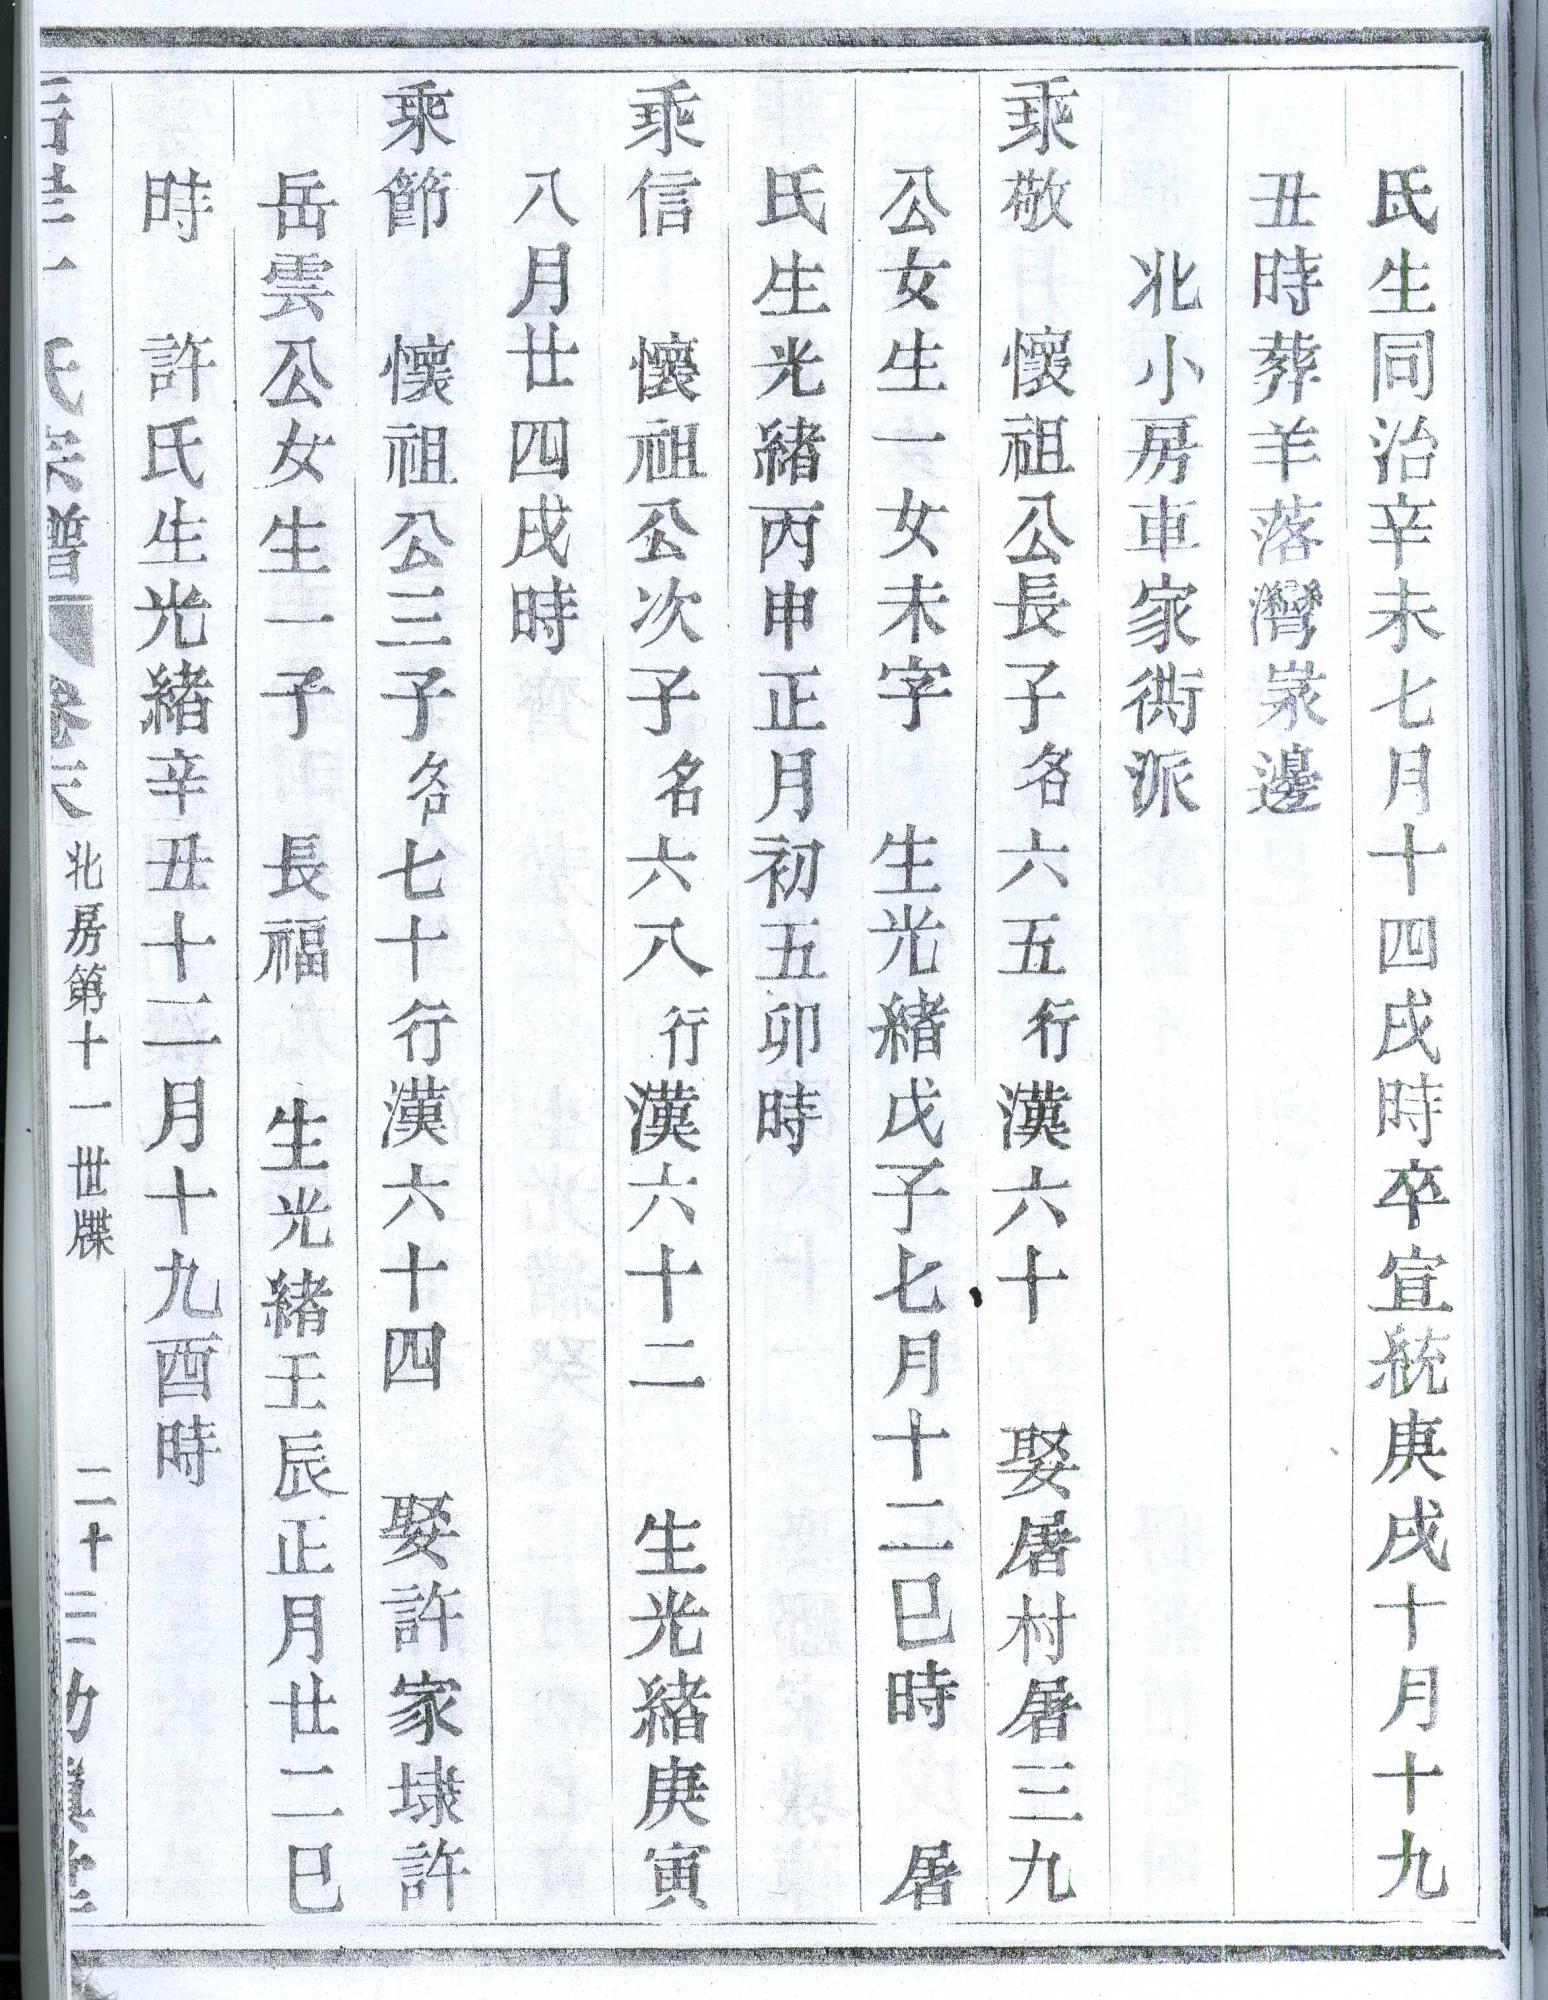 氏生同治辛未七月十四戌時卒宣統庚戌十月十九
丑時葬羊落灣冡邊
北小房車家衖派
乘敬 懷祖公長子名六五行漢六十 娶屠村屠三九
公女生一女未字 生光緒戊子七月十二巳時 屠
氏生光緒丙申正月初五卯時
乘信 懷祖公次子名六八行漢六十二 生光緒庚寅
八月廿四戌時
乘節 懷祖公三子名七十行漢六十四 娶許家埭許
岳雲公女生一子 長福 生光緒壬辰正月廿二巳
時 許氏生光緒辛丑十二月十九酉時
氏宗譜 卷六 北房第十一世牒 二十三